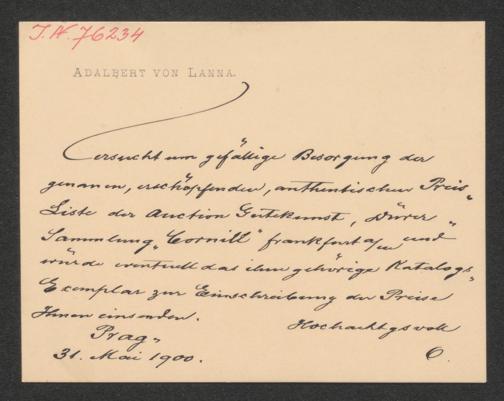 I.N. 76234
ADALBERT VON LANNA.
ersucht um gefällige Besorgung der
genauen, erschöpfenden, authentischen Preis„
Liste der Auction Gutekunst, „Dürer„
Sammlung „Cornill" Frankfurt a/m und
würde eventuell das ihm gehörige Katalogs„
Exemplar zur Einschreibung der Preise
Ihnen einsenden.
Hochachtgsvoll
Prag„
31. Mai 1900.